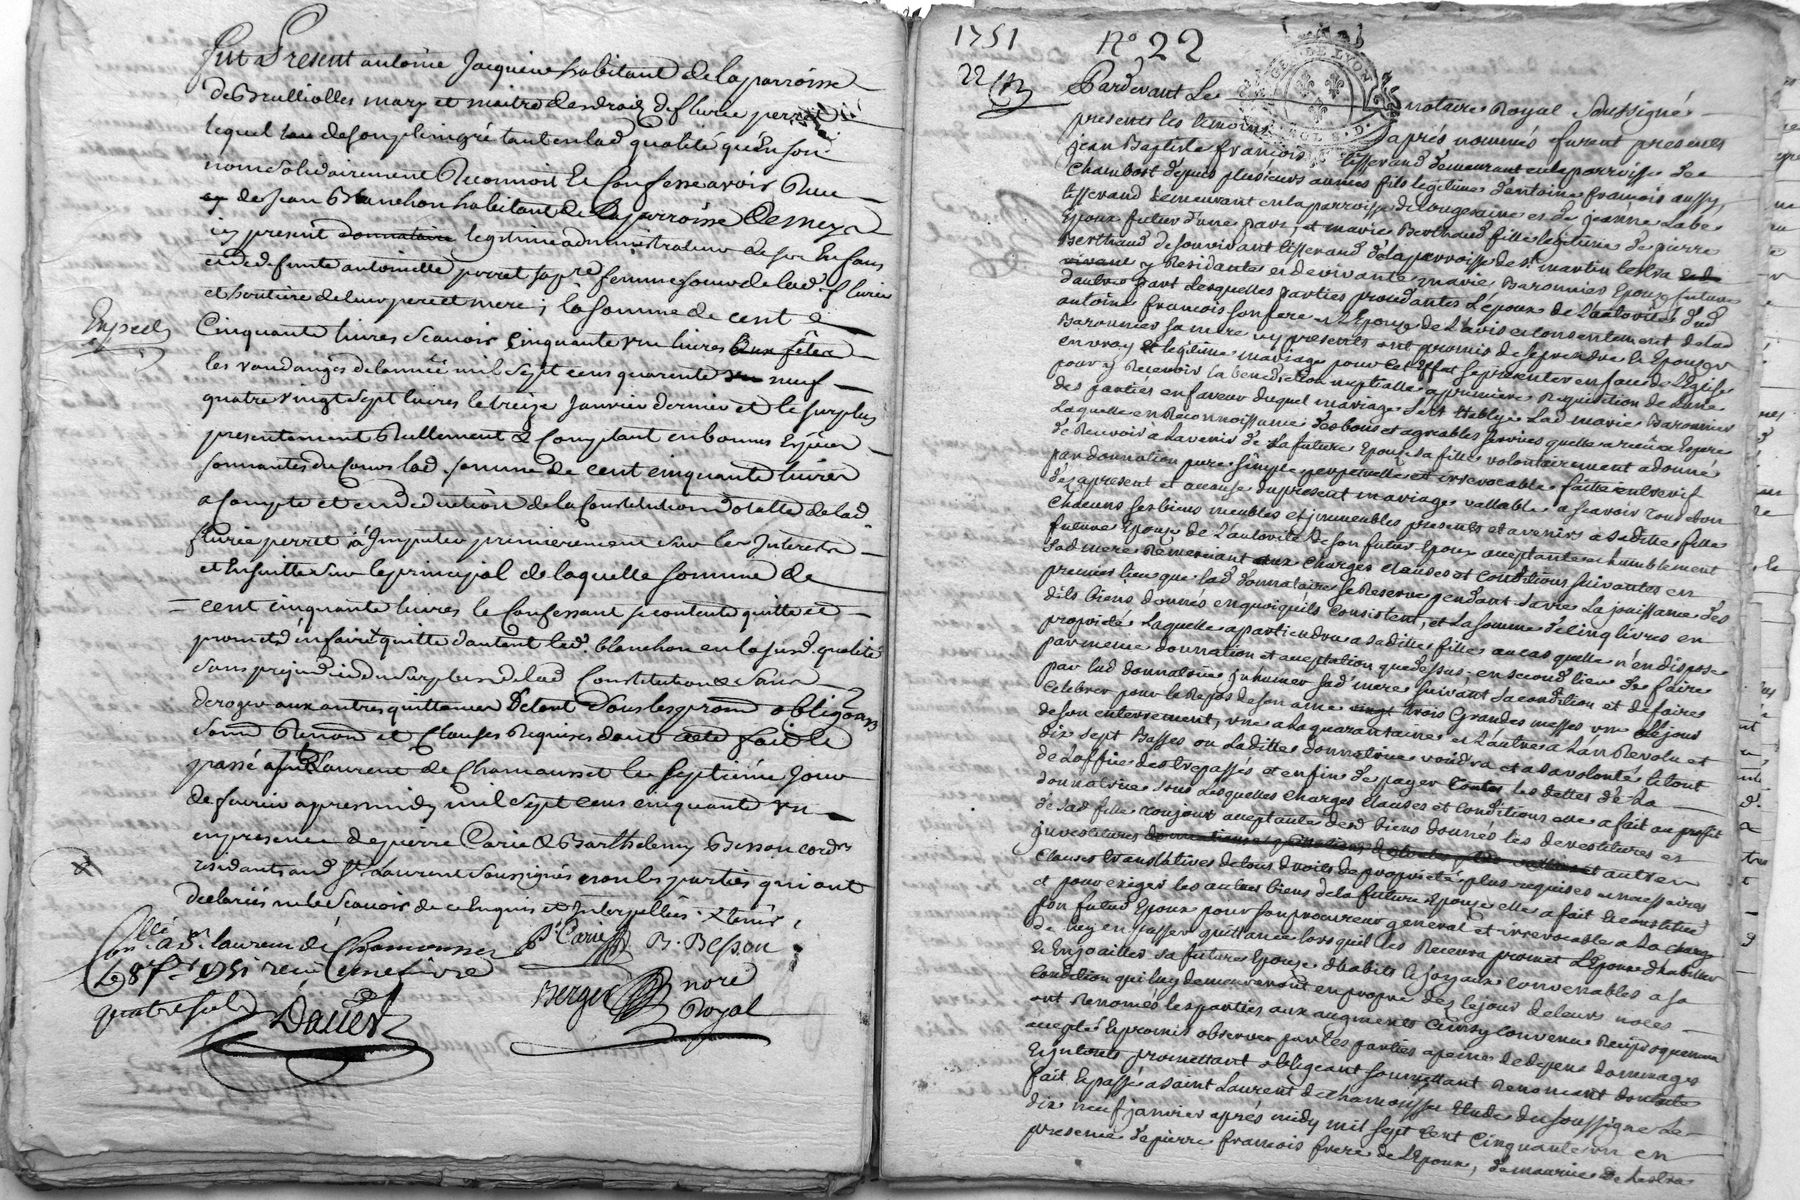 Fut Present antoine Jacquine habitant de la parroisse
de Brulliolles mary et maitre des droits de flurie perret
lequel de son plein gré tant en lad qualité qu'en son
nom solidairement Reconnoit et Confesse avoir Receu
de Jean Blanchon habitant de la parroisse de meys
icy present donnataire legitime administrateur de ses Enfans
et de defunte antoinette perret sa femme soeur de lad. flurie
et heritiere de leurs pere et mere; la somme de cent
Expedié
Cinquante livres scavoir Cinquante une livres aux fêtes
les vandanges de l'année mil sept cens quarente neuf
quatre vingt sept livres le treize Janvier dernier et le surplus
presentement Reellement & Comptant en bonnes Espèces
sonnantes du cours lad. somme de cent cinquante livres
a Compte et en deduction de la Constitution dotalle de lad
flurie perret à Imputer premierement sur les Interests
et Ensuitte sur le principal de laquelle somme de
cent cinquante livres le Confessant se contente quitte et
promet d'en faire quitte d'autant led. blanchon en la susd. qualité
sans prejudice du surplus de lad Constitution & sans
deroger aux autres quittances obligeans
Renon et Clauses Requises dont acte fait &
passé a St Laurent de Chamousset le Septième Jour
de fevrier apres midy mil sept cens cinquante un
en presence de pierre Carie & Barthelemy Besson cord.
residants aud St Laurent Soussignés non les parties qui ont
declarés ne le Scavoir de ce Enquis et Interpellés.
P. Carie B. Besson
Berger nore
Royal
Con.lé a St. laurent de Chamousset
Le 8 1751 receu
quatre sols
1751 No 22
22
Pardevant Le notaire Royal Soussigné
presents les temoins apres nommés furent presents
jean Baptiste françois tisserand demeurant en la parroisse de
Chambost depuis plusieurs années fils legitime d'antoine françois aussy
tisserand demeurant en la parroisse de Longesaine et de jeanne Labe
Epoux futur d'une part, et marie Berthaud fille legitime de pierre
Berthaud de son vivant tisserand de la parroisse de St martin
vivant y Residante et de vivante marie Baronnier Epouze future
d'autre part Lesquelles parties procedantes L'epoux de L'autorité dud
antoine françois son pere et L'Epouze de L'avis et consentement de lad
Baronnier sa mere icy presents ont promis de se prendre & Epouzer
en vray & legitime mariage pour cet Effet se presenter en face de L'Eglise
pour y Recevoir la benediction nuptialle a premiere Requisition de L'une
des parties en faveur duquel mariage s'est Etably Lad marie Baronnier
Laquelle en Reconnoissance des bons et agreables services quelle a receu & Espere
de Recevoir à Lavenir de La future Epouze sa fille volontairement a donné
par donnation pure simple perpetuelle et irrevocable faitte entre vif
dès apresent et acause du present mariage vallable a scavoir tous et un
chacuns ses biens meubles et immeubles presents et avenirs à sa ditte fille
future Epouze de L'autorité de son futur Epoux acceptante & humblement
sad mere Remerciant aux charges clauses et conditions suivantes en
premier lieu que lad donnatrice se Reserve pendant sa vie La jouissance des
dits biens donnés en quoi qu'ils consistent, et La somme de cinq livres en
proprieté Laquelle apartiendra a sa ditte fille au cas quelle n'en dispose
par meme donnation et acceptation que dessus, en second lieu de faire
par lad donnataire inhumer sad mere suivant sa condition et de faire
celebrer pour le Repos de son ame vingt trois Grandes messes une le jour
de son enterrement, une a La quarantaine et L'autre a L'an Revolu et
dix sept Basses ou La ditte donnatrice voudra et a sa volonté le tout
de L'office des trepassés et enfin de payer toutes les dettes de La
donnatrice sous Lesquelles charges clauses et conditions elle a fait au profit
de sad fille toujours acceptante desd biens donnés les devestitures et
investitures et autres
clauses translatives de tous droits de proprieté plus requises et necessaires
et pour exiger les autres biens de la future Epouze elle a fait & constitué
son futur Epoux pour son procureur general et irrevocable a La charge
de luy en passer quittance lorsqu'il les Recevra promet L'Epoux d'habiller
& Enjoailler sa future Epouze d'habits & joyaux convenables a sa
condition qui luy demeureront en propre dez le jour de leurs noces
ont Renoncé les parties aux augments Reciproquement
accepté & promis observer par les parties a peine de depens dommages
Et interets promettant obligeant soumettant Renonçant dont acte
fait & passé a saint Laurent de chamousset Etude du soussigné Le
dix neuf janvier après midy mil sept cent Cinquante un en
presence de pierre françois frere de L'Epoux, de maurice